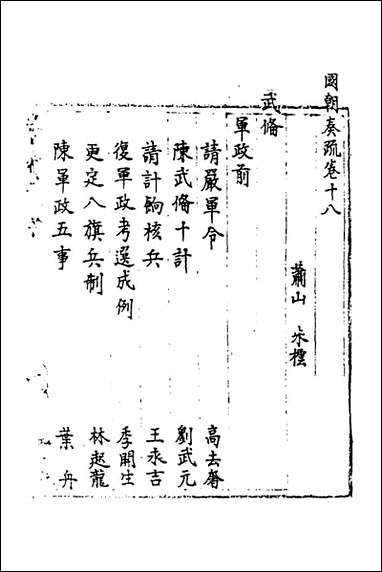 國朝奏疏卷十八
蕭山 朱櫏
武僃
軍政前
請嚴軍令 高去奢
陳武僃十計 劉武元
請計餉核兵 王永吉
復軍政考選成例 季開生
更定八旗兵制 林起龍
陳軍政五事 葉舟